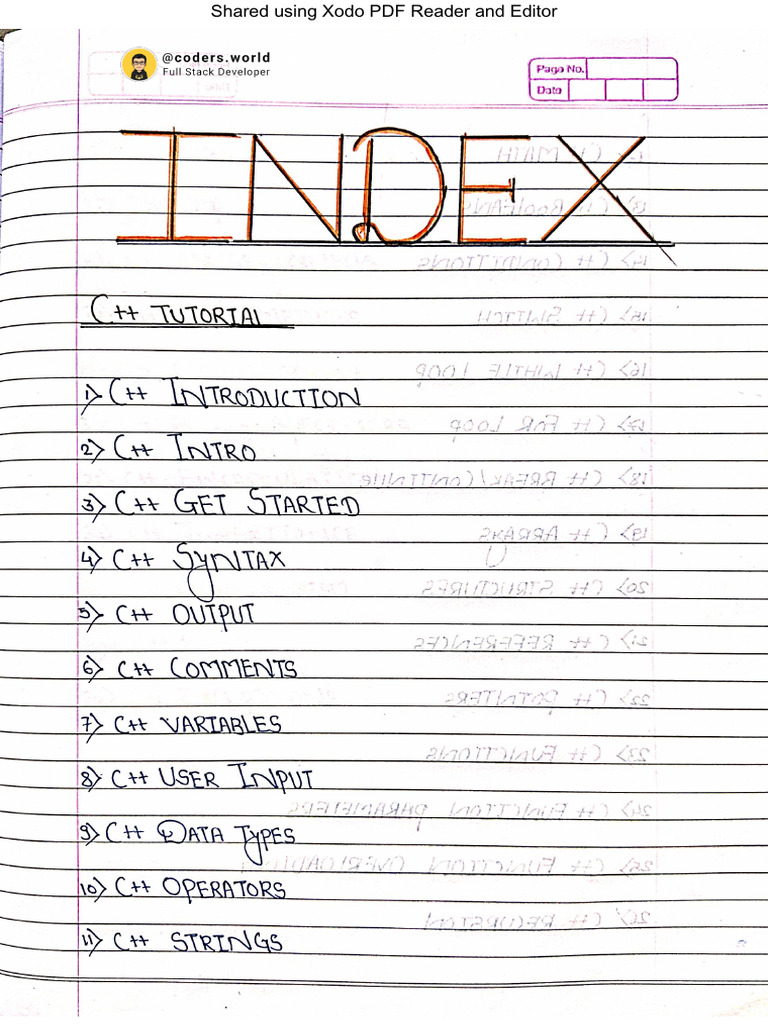 Shared using Xodo PDF Reader and Editor
@coders.world
Full Stack Developer
Page No.
Date
INDEX
C++ TUTORIAL
1) C++ INTRODUCTION
2) C++ INTRO
3) C++ GET STARTED
4) C++ SyNTAX
5) C++ OUTPUT
6) C++ COMMENTS
7) C++ VARIABLES
8) C++ USER INPUT
9) C++ DATA TyPES
10) C++ OPERATORS
11) C++ STRINGS